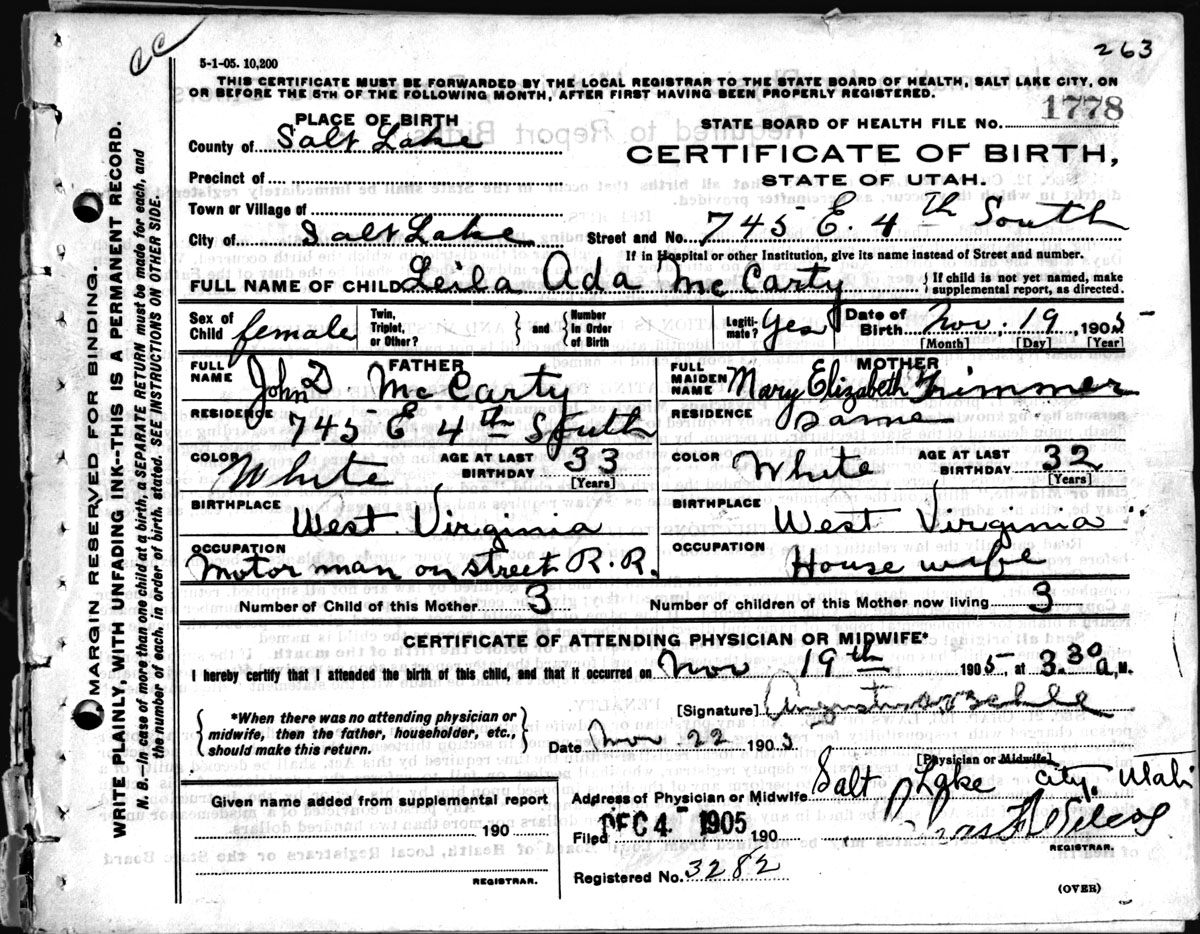 cc
263
5-1-05. 10,200
THIS CERTIFICATE MUST BE FORWARDED BY THE LOCAL REGISTRAR TO THE STATE BOARD OF HEALTH, SALT LAKE CITY, ON
OR BEFORE THE 5TH OF THE FOLLOWING MONTH, AFTER FIRST HAVING BEEN PROPERLY REGISTERED.
PLACE OF BIRTH
STATE BOARD OF HEALTH FILE No. 1778
County of Salt Lake
CERTIFICATE OF BIRTH,
Precinct of
STATE OF UTAH.
Town or Village of
City of Salt Lake Street and No. 745 E. 4th South
If in Hospital or other Institution, give its name instead of Street and number.
FULL NAME OF CHILD Leila Ada McCarty { If child is not yet named, make supplemental report, as directed.
Sex of Child female Twin, Triplet, or Other? } and { Number in Order of Birth Legiti-mate? Yes Date of Birth Nov. 19, 1905
[Month] [Day] [Year]
FATHER
FULL NAME John D. McCarty
MOTHER
FULL MAIDEN NAME Mary Elizabeth Trimmer
RESIDENCE 745 E 4th South
RESIDENCE Same
COLOR White AGE AT LAST BIRTHDAY 33 [Years]
COLOR White AGE AT LAST BIRTHDAY 32 [Years]
BIRTHPLACE West Virginia
BIRTHPLACE West Virginia
OCCUPATION Motor man on street R.R.
OCCUPATION House wife
Number of Child of this Mother 3 Number of children of this Mother now living 3
CERTIFICATE OF ATTENDING PHYSICIAN OR MIDWIFE*
I hereby certify that I attended the birth of this child, and that it occurred on Nov 19th 1905, at 3.30 a. M.
[Signature] Augustus Behle
{ *When there was no attending physician or midwife, then the father, householder, etc., should make this return. }
Date Nov. 22 1905
[Physician or Midwife]
Address of Physician or Midwife Salt Lake City, Utah
Given name added from supplemental report
190
REGISTRAR.
Filed DEC 4 1905 190
REGISTRAR.
Registered No. 3282
(OVER)
MARGIN RESERVED FOR BINDING.
WRITE PLAINLY, WITH UNFADING INK--THIS IS A PERMANENT RECORD.
N. B.—In case of more than one child at a birth, a SEPARATE RETURN must be made for each, and
the number of each, in order of birth, stated. SEE INSTRUCTIONS ON OTHER SIDE.